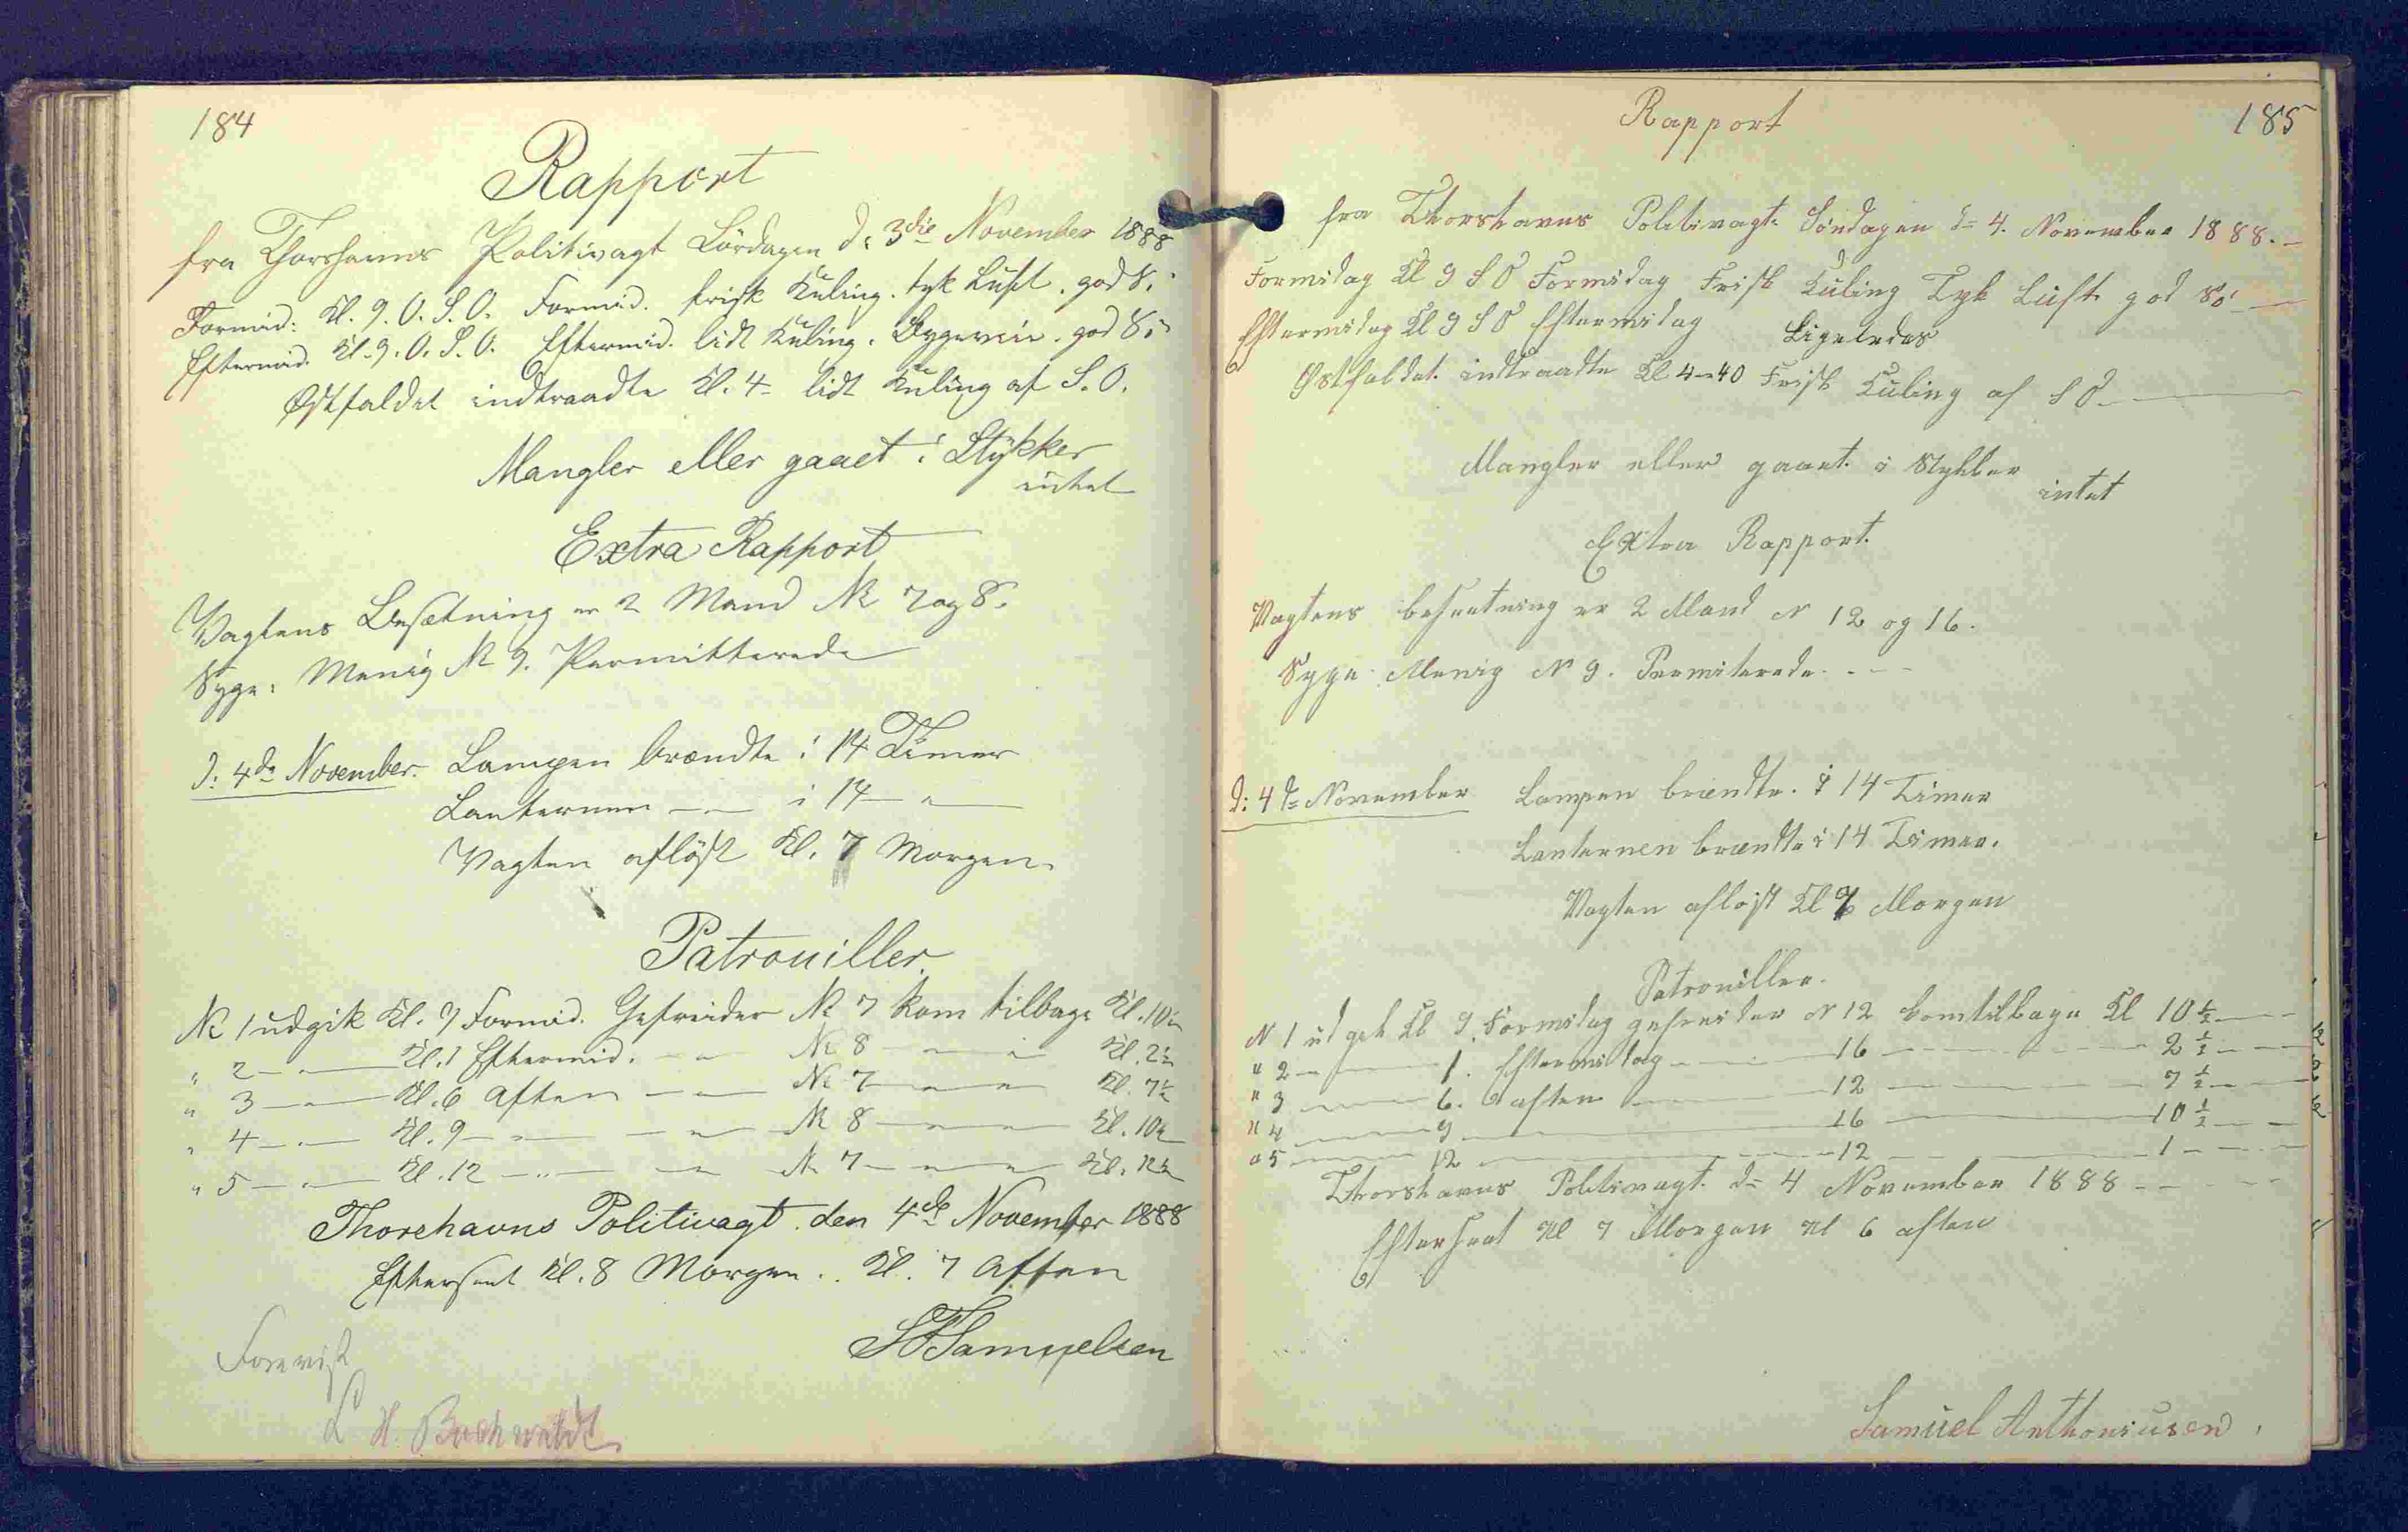 184
Rapport
fra Thorshavns Politivagt Lördagen d: 3die November 1888
Formid: Kl. 9. O. S. O. Formid. frisk Kuling. tyk Luft. god S.
Eftermid. Kl. 9. O. S. O. Eftermid. lidt Kuling. Bygeveir. god S.
Østfaldet indtraadte Kl. 4 - lidt Kuling af S. O.
Mangler eller gaaet i Stykker
intet
Extra Rapport
Vagtens Besætning er 2 Mand № 7 og 8.
Syge: Menig № 9. Permitterede
d: 4de November. Lampen brændte i 14 Timer
Lanternen — „ — i 14 — „ —
Vagten afløst Kl. 7 Morgen.
Patrouiller
№ 1 udgik Kl. 9 Formid. Gefreider № 7 kom tilbage Kl. 10½
„ 2 — „ — Kl. 1 Eftermid. — „ № 8 — „ — „ Kl. 2½
„ 3 — „ — Kl. 6 Aften — „ — № 7 — „ — „ Kl. 7½
„ 4 — „ — Kl. 9 — „ — — „ — № 8 — „ — „ Kl. 10½
„ 5 — „ — Kl. 12 — „ — — „ — № 7 — „ — „ Kl. 12½
Thorshavns Politivagt. den 4de November 1888
Efterseet Kl. 8 Morgen.. Kl. 7 Aften
Samuelsen
Forevist
H. Buchwaldt
185
Rapport
fra Thorshavns Politivagt. Søndagen d= 4. November 1888. —
Formidag Kl 9 S O Formidag Frisk Kuling Tyk Luft god Sö —
Eftermidag Kl 9 S O Eftermidag Ligeledes
Østfaldet. indtraadte Kl 4-40 Frisk Kuling af S O —
Mangler eller gaaet. i Stykker
intet
Extra Rapport.
Vagtens besaetning er 2 Mand N 12 og 16.
Syge Menig N 9. Permiterede. - -
d: 4d= November Lampen brændte. i 14 Timer
Lanternen brændte i 14 Timer.
Vagten afløst Kl 7 Morgen
Patrouiller.
N 1 udgek Kl 9 Formidag gefreider N 12 komtilbage Kl 10 ½ —
„ 2 — 1. Eftermidag — 16 — 2 ½ —
„ 3 — 6. aften — 12 — 7 ½ —
„ 4 — 9 — 16 — 10 ½ —
„ 5 — 12 — 12 — 1 —
Thorshavns Politivagt. d= 4 November 1888 - -
Efterseet Kl 7 Morgen Kl 6 aften
Samuel Anthoniusen.